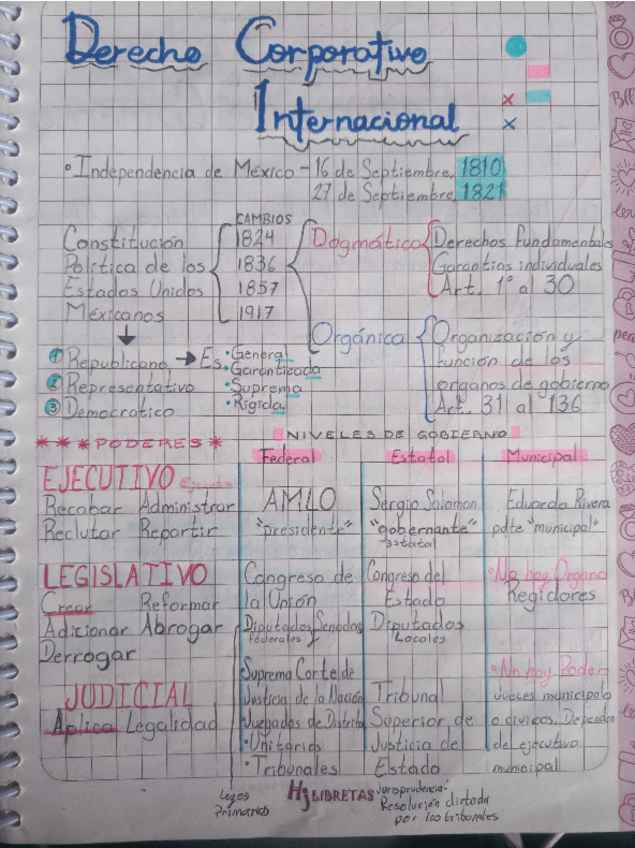 Derecho Corporativo
Internacional
° Independencia de México - 16 de Septiembre, 1810
27 de Septiembre, 1821
Constitución
Política de los
Estados Unidos
Méxicanos
CAMBIOS
1824
1836
1857
1917
Dogmática
Derechos fundamentals
Garantias individuales
Art. 1° al 30
Orgánica
Organización y
función de los
organos de gobierno
Art. 31 al 136
① Republicano → Es:
② Representativo
③ Democratico
• General
• Garantizada
• Suprema
• Rigida
***PODERES*
NIVELES DE GOBIERNO
Federal Estatal Municipal
EJECUTIVO
Recabar Administrar
Reclutar Repartir
AMLO
"presidente"
Sergio Salomon
"gobernante"
estatal
Eduardo Rivera
pdte "municipal"
LEGISLATIVO
Crear Reformar
Adicionar Abrogar
Derrogar
Congreso de
la Unión
Diputados Senadores
Federales y
Congreso del
Estado
Diputados
Locales
° No hay Organo
Regidores
JUDICIAL
Aplica Legalidad
Suprema Corte de
Justicia de la Nación
• Juzgados de Distrito
• Unitarios
• Tribunales
Tribunal
Superior de
Justicia de
Estado
° No hay Poder
Jueces municipals
o civicos. Dependen
de ejecutivo
municipal
Leyes
Primarias
Hj LIBRETAS
Jurisprudencia:
Resolución dictada
por los tribunales